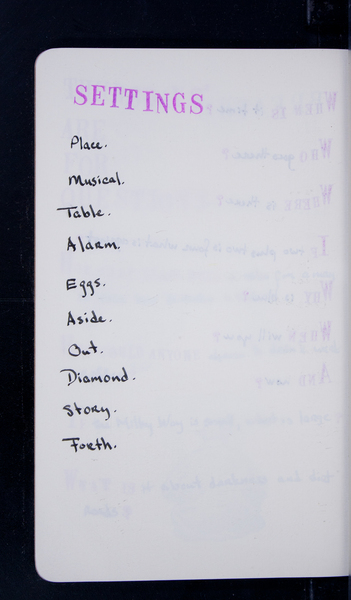 SETTINGS
Place.
Musical.
Table.
Alarm.
Eggs.
Aside.
Out.
Diamond.
Story.
Forth.